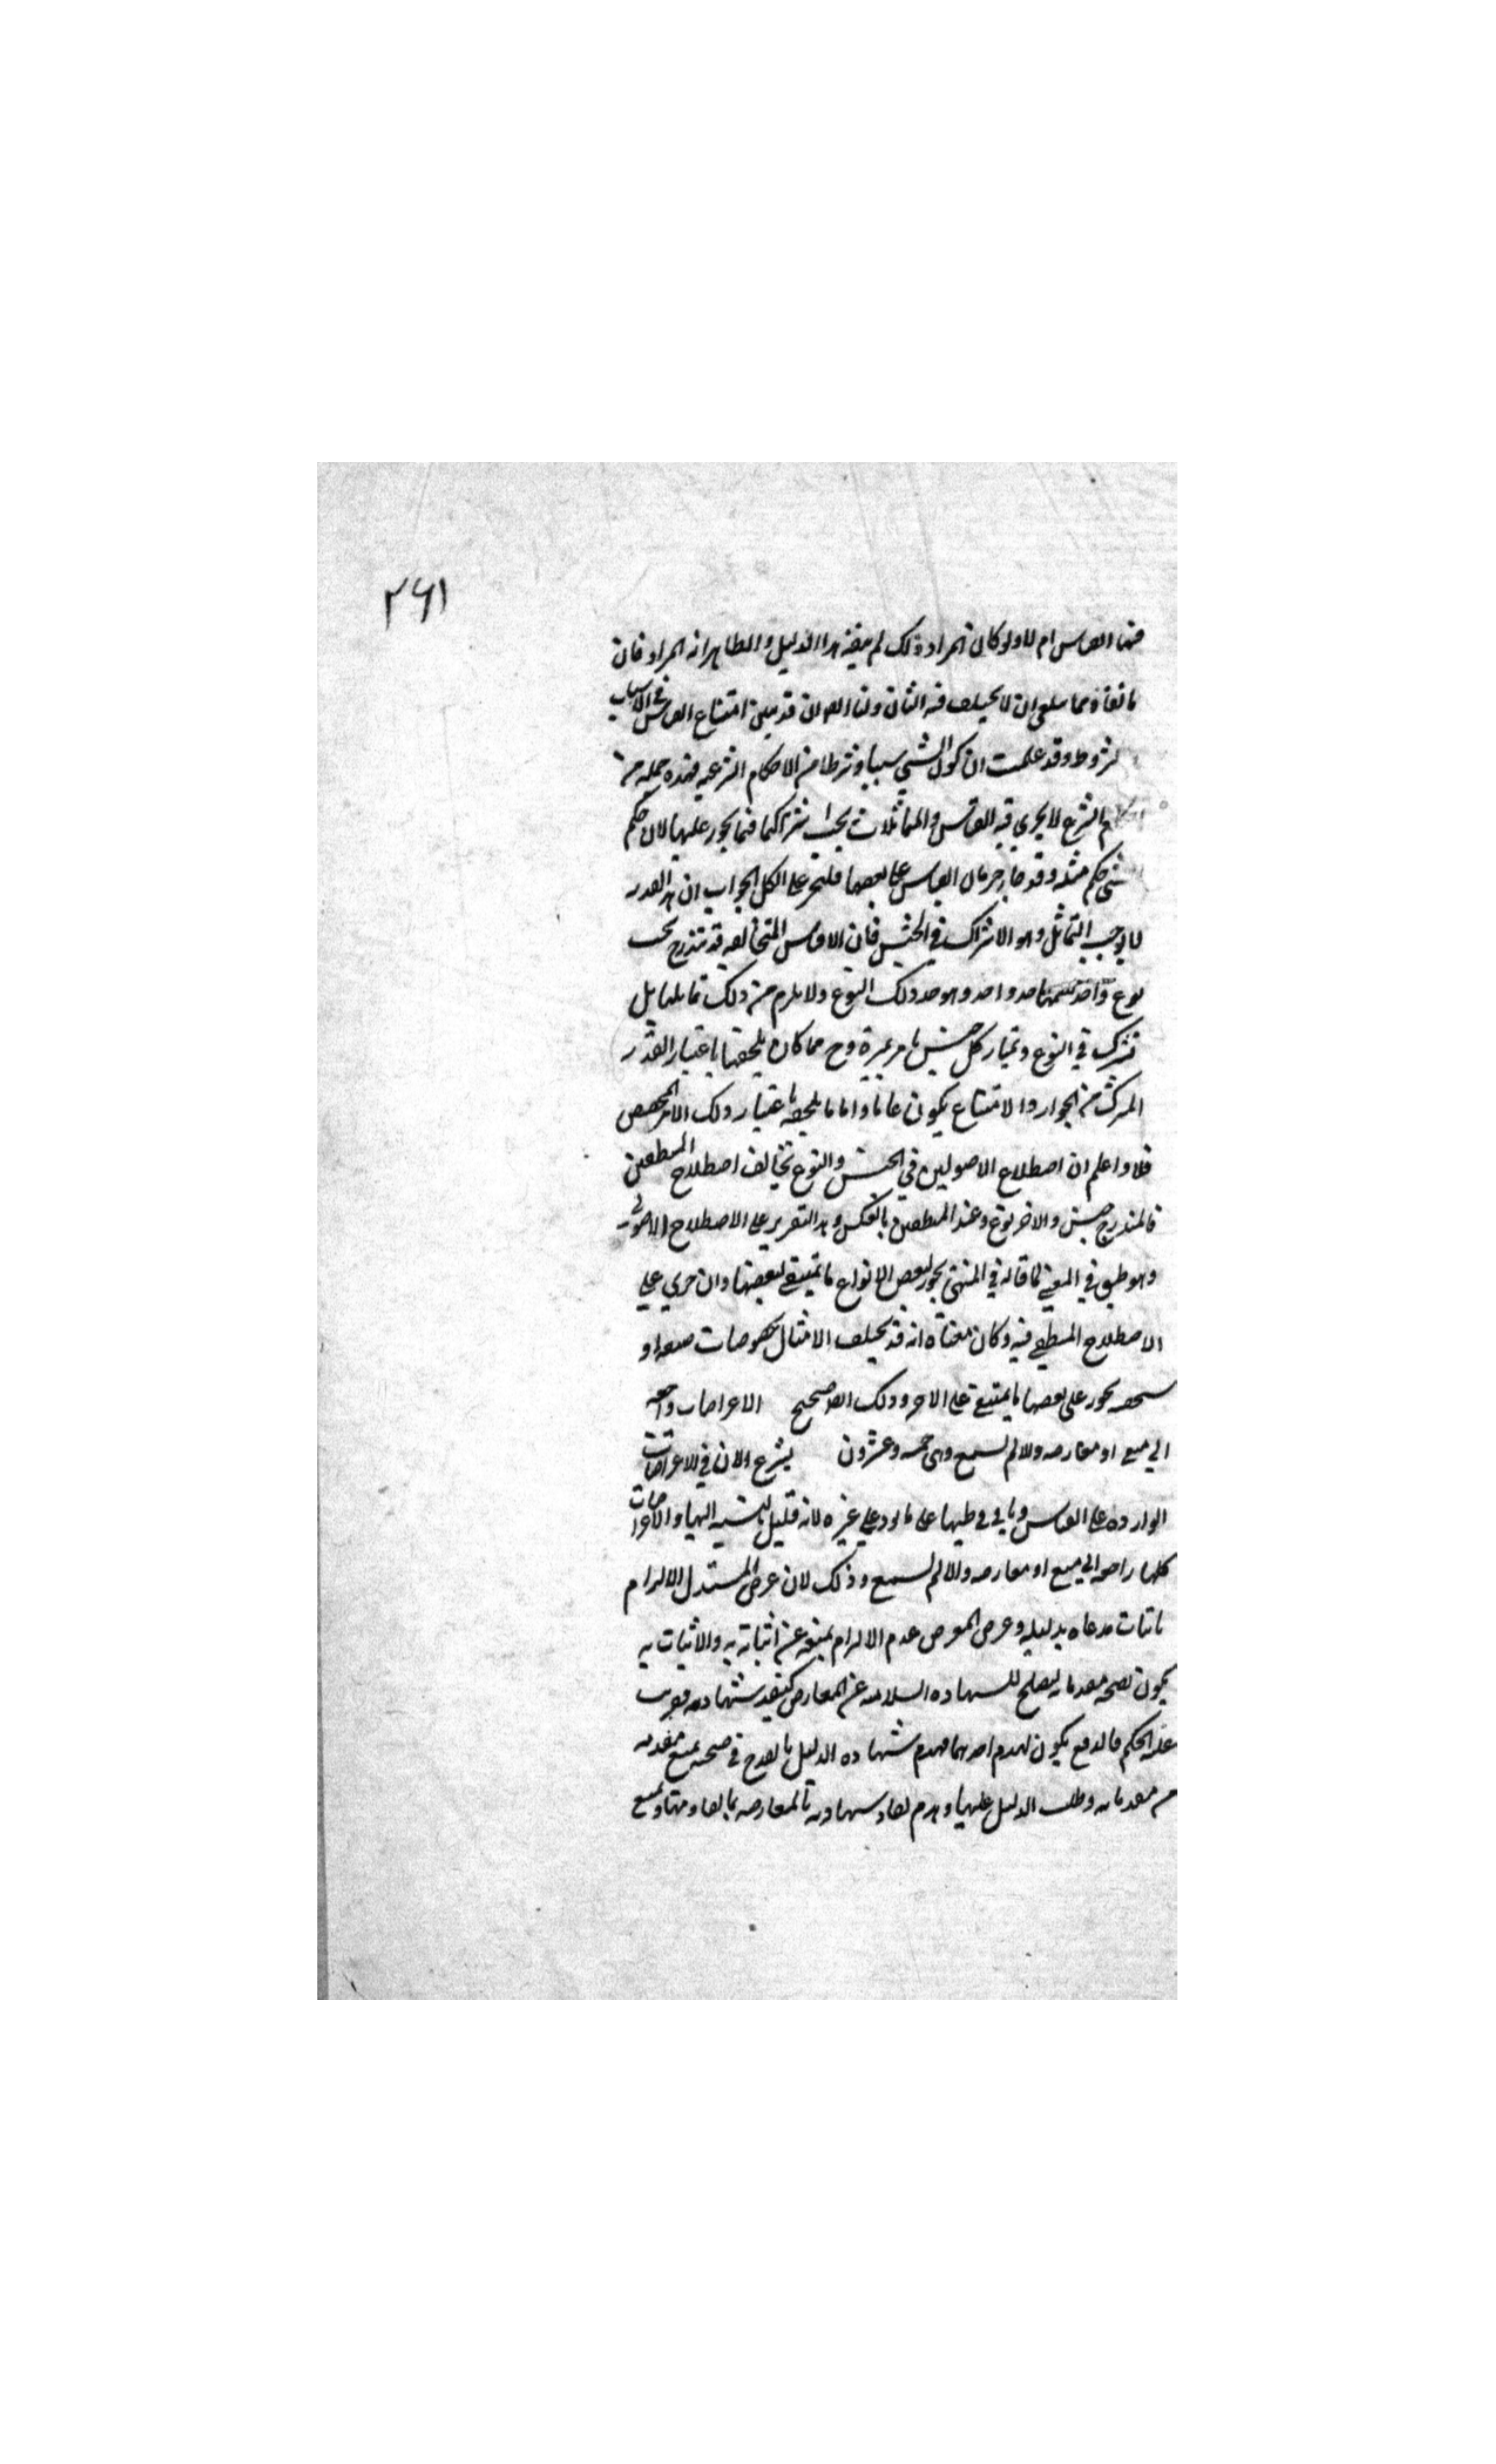 ٢٦١
فيها القياس ام لا ولو كان المراد ذلك لم يفد هذا الدليل والظاهر انه المراد فان
ما نفاه مما ينبغي ان لا يختلف فيه اثنان ولنا ايضا ان قد تبين امتناع القياس في الاسباب
والشروط وقد علمت ان كون الشي سببا وشرطا من الاحكام الشرعيه فهذه جمله من
احكام الشرع لا يجري فيه القياس والمتماثلات يجب اشتراكها فيما يجوز عليها لان حكم
الشي حكم مثله وقد جاز جريان القياس على بعضها فليجز على الكل الجواب ان هذا القدر
لا يوجب التماثل وهو الاشتراك في الجنس فان الاجناس المتخالفه قد تندرج تحت
نوع واحد فيعمها حد واحد وهو حد ذلك النوع ولا يلزم من ذلك تماثلها بل
تشترك في النوع ويمتاز كل جنس بامر يميزه وح مما كان يلحقها باعتبار القدر
المشترك من الجواز والامتناع يكون عاما واما ما يلحقه باعتبار ذلك الامر المخصص
فلا واعلم ان اصطلاح الاصوليين في الجنس والنوع تخالف اصطلاح المنطقيين
فالمندرج جنس والاخر نوع وعند المنطقيين بالعكس وهذا التقرير على الاصطلاح الاصولي
وهو طبق في المعنى لما قاله في المنتهى يجوز لبعض الانواع ما يمتنع لبعضها وان جرى على
الاصطلاح المنطقي فيه وكان معناه انه قد يختلف الامثال بخصوصات صنفه او
شخصه يجوز على بعضها ما يمتنع على الاخر وذلك ايضا صحيح الاعتراضات راجعه
الى منع او معارضه والا لم تسمع وهي خمسه وعشرون يشرع الان في الاعتراضات
الوارده على القياس وياتي في طيها على ما يورد على غيره لانه قليل بالنسبه اليها والاعتراضات
كلها راجعه الى منع او معارضه والا لم تسمع وذلك لان غرض المستدل الالزام
باثبات مدعاه بدليله وغرض المعترض عدم الالزام بمنعه عن اثباته به والاثبات به
يكون بصحه مقدماته ليصلح للشهاده والسلامه عن المعارض لينفذ شهادته فيترتب
عليه الحكم فالدفع يكون بهدم احدهما فهدم شهاده الدليل بالقدح في صحته بمنع مقدمه
من مقدماته وطلب الدليل عليها وهدم نفاد شهادته بالمعارضه بما يقاومها ويمنع